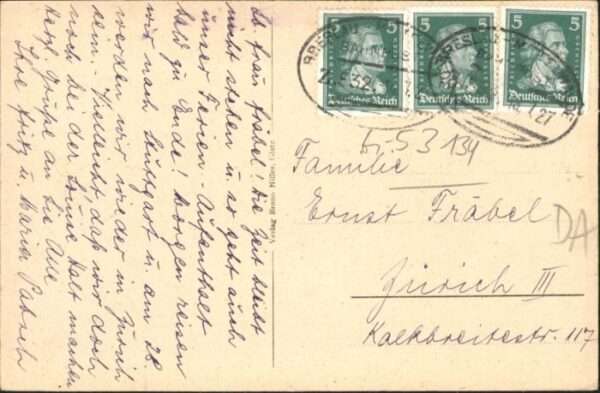 Lb. Frau Fräbel! Die Zeit bleibt
nicht stehen u. es geht auch
unser Ferien-Aufenthalt
bald zu Ende! Morgen reisen
wir nach Stuttgart u. am 28.
werden wir wieder in Zürich
sein. Vielleicht, daß wir doch
noch bei der Sonne Halt machen.
Herzl. Grüße an Sie Alle
Ihre Fritz u. Maria
Verlag Benno Müller, Glatz
5
5
5
Deutsches Reich
Deutsches Reich
Deutsches Reich
BRESLAU
BRESLAU
Familie
Ernst Fräbel
Zürich III
Kalkbreitestr. 117
53 134
DA